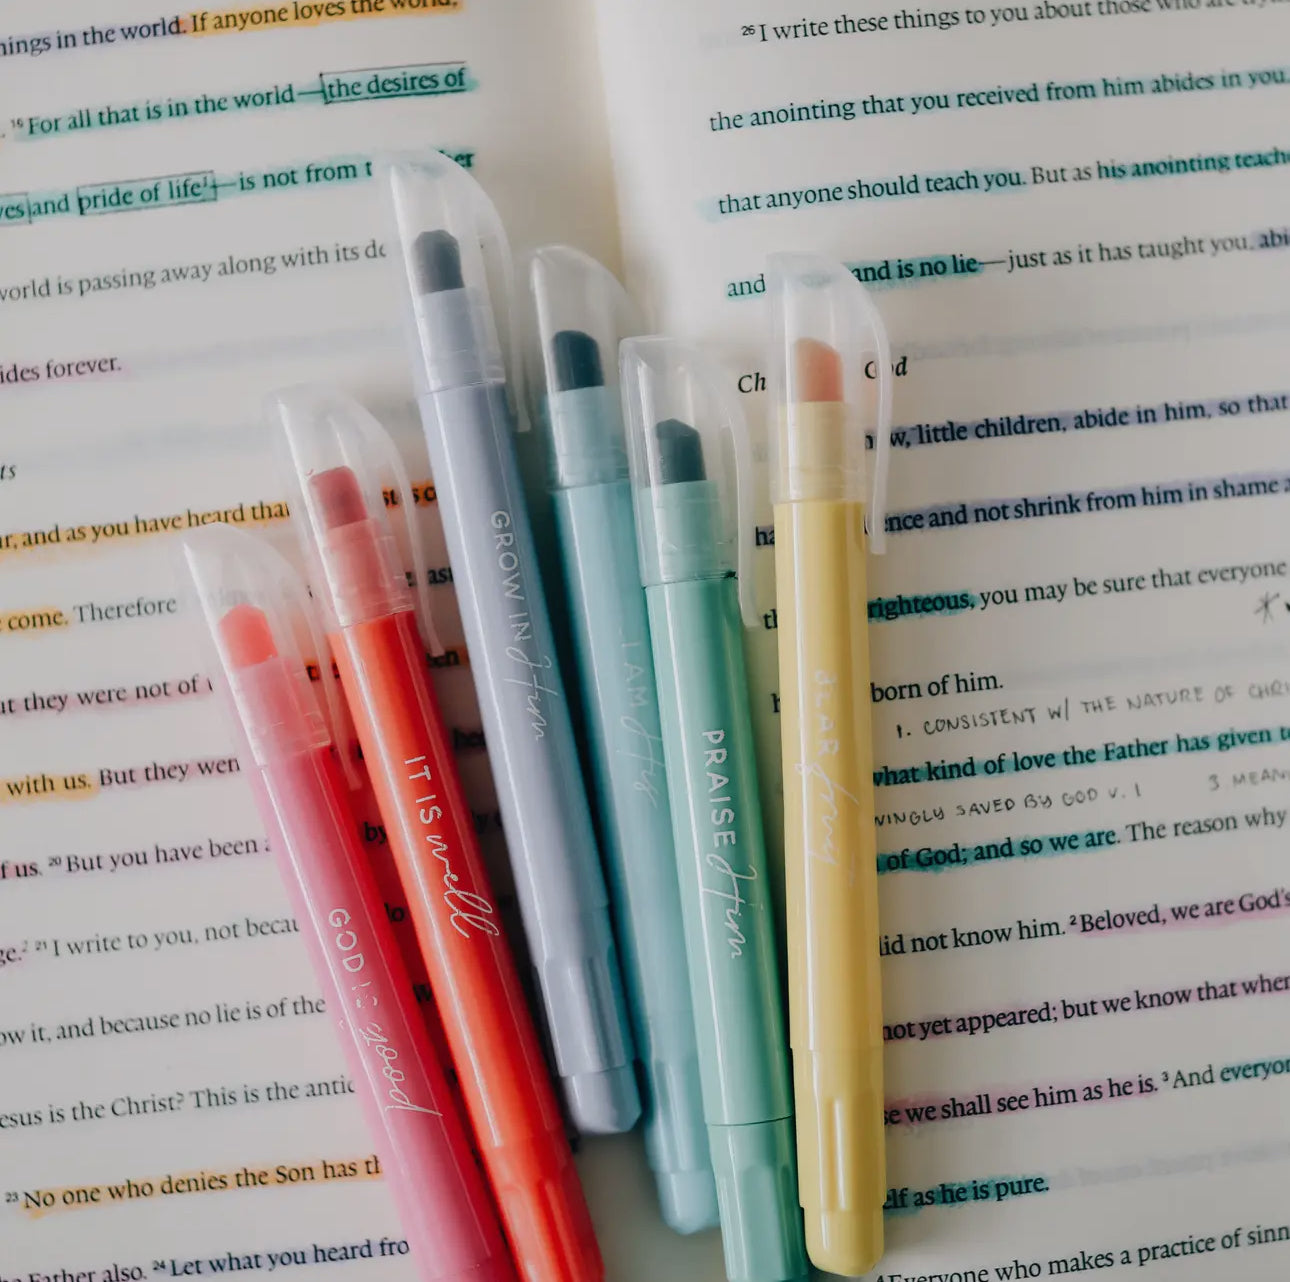 things in the world. If anyone loves the world,
. 16 For all that is in the world—the desires of
and pride of life1—is not from
world is passing away along with its
forever.
and as you have heard that
come. Therefore
they were not of
with us. But they
of us. 20 But you have been
2 21 I write to you, not
it, and because no lie is of the
is the Christ? This is the
23 No one who denies the Son has
Father also. 24 Let what you heard
26 I write these things to you about those who are
the anointing that you received from him abides in you,
that anyone should teach you. But as his anointing
and and is no lie—just as it has taught you,
God
little children, abide in him, so that
and not shrink from him in shame
righteous, you may be sure that everyone
born of him.
1. CONSISTENT W/ THE NATURE OF
what kind of love the Father has given
SAVED BY GOD V. 1 3
of God; and so we are. The reason why
did not know him. 2 Beloved, we are God's
not yet appeared; but we know that
we shall see him as he is. 3 And
as he is pure.
who makes a practice of
GOD IS good
IT IS well
GROW IN Him
I AM His
PRAISE Him
BEAR fruit